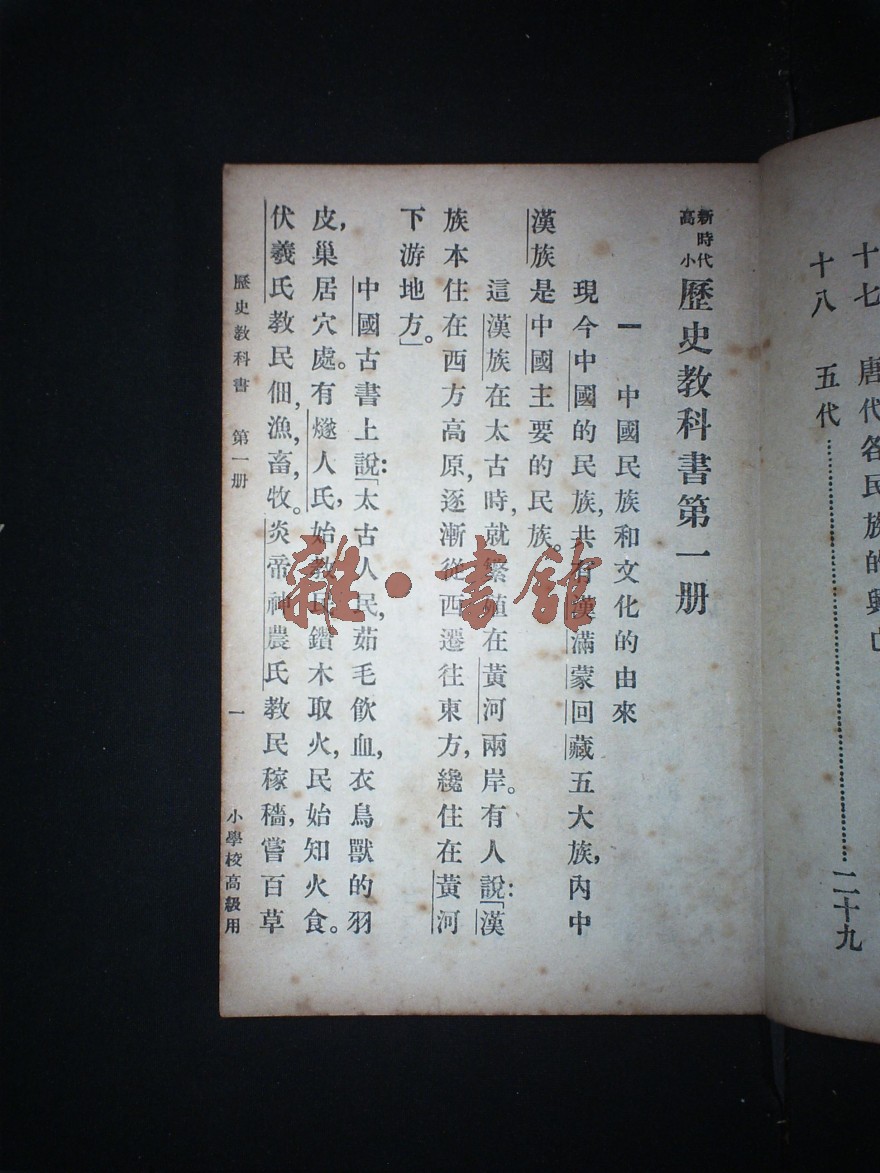 十七　唐代各民族的興亡
十八　五代……二十九
新時代
高小
歷史教科書第一册
一　中國民族和文化的由來
現今中國的民族，共有漢滿蒙回藏五大族，內中
漢族是中國主要的民族。
這漢族在太古時，就繁殖在黃河兩岸。有人說：「漢
族本住在西方高原，逐漸從西遷往東方，纔住在黃河
下游地方」。
中國古書上說：「太古人民，茹毛飲血，衣鳥獸的羽
皮，巢居穴處。有燧人氏，始教民鑽木取火，民始知火食。
伏羲氏教民佃，漁，畜，牧。炎帝神農氏教民稼穡，嘗百草
歷史教科書　第一册　一　小學校高級用
雜·書館